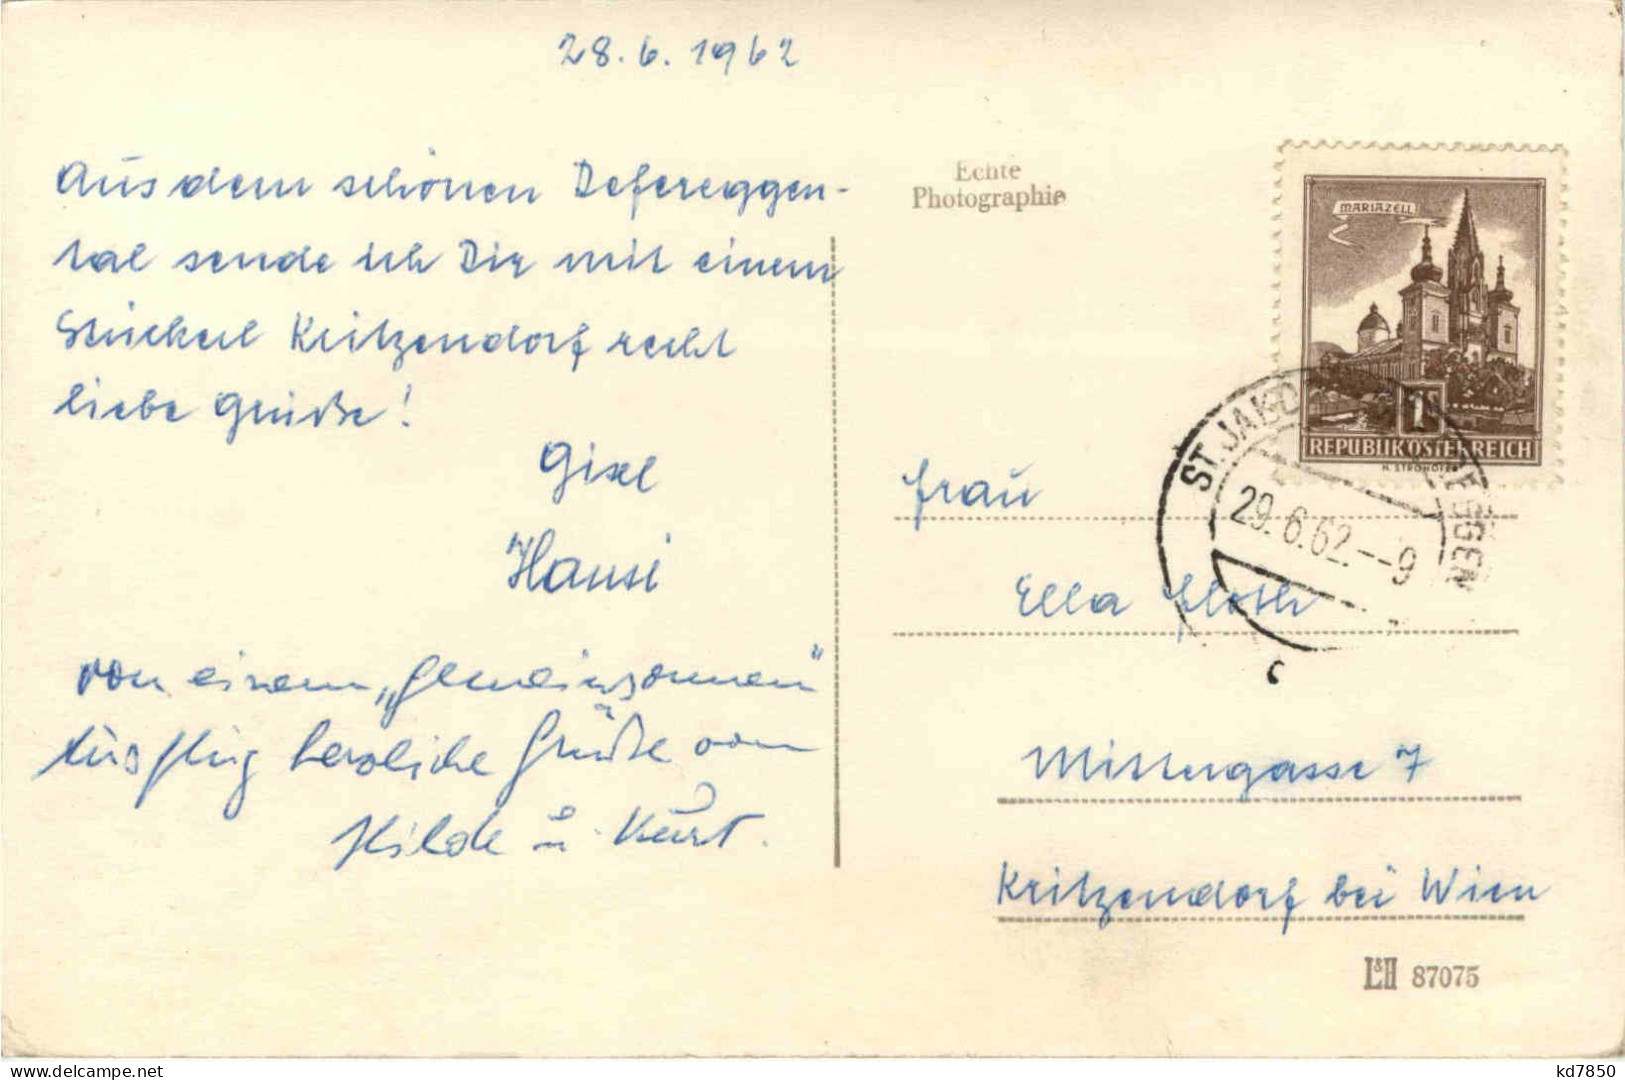 28.6.1962
Aus dem schönen Defereggen-
tal sende ich Dir mit einem
Stückerl Kritzendorf recht
liebe Grüße!
Gisel
Hansi
von einem „gemeinsamen“
Ausflug herzliche Grüße von
Hilde u. Kurt.
Echte
Photographie
MARIAZELL
1 S
REPUBLIK ÖSTERREICH
ST. JAKO
EGGEN
29.6.62.--9
c
Frau
Ella
Mittergasse 7
Kritzendorf bei Wien
L&H 87075
delcampe.net
kd7850